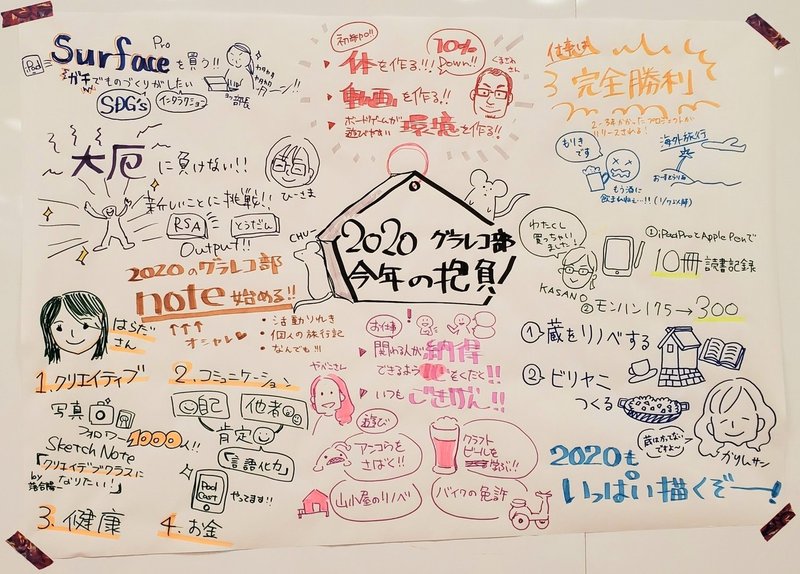 Surface Pro を買う!!
iPad
ガチでものづくりがしたい
SDG's
インタラクション
カタカタ
カタカタ
ターン!!
部長
大厄に負けない!!
新しいことに挑戦!!
RSA
とうだん
Output!!
ひーさま
2020のグラレコ部
note始める!!
オシャレ
・活動りれき
・個人の旅行記
・なんでも!!!
はらださん
1.クリエイティブ
写真
フォロワー1000人!!
Sketch Note
「クリエイテブクラスになりたい!」
by 落合陽一
2.コミュニケーション
自己
他者
肯定
言語化力
Pod Cast
やってます!!
3.健康
4.お金
初年PO!!
体を作る!!
10% Down!!
くるぶさん
動画を作る!!
ボードゲームが遊びやすい
環境を作る!!
CHU~
2020 グラレコ部
今年の抱負!
お仕事
関わる人が納得
できるよう
をくだく!!
いつもごきげん!!
やべこさん
遊び
アンコウをさばく!!
クラフトビールを学ぶ!!
山小屋のリノベ
バイクの免許
仕事も
完全勝利
2~3年かかったプロジェクトが
リリースされる!
もりきです
海外旅行
おーすとらりあ
もう酒に
飲まれねぇ…!!
わたくし買っちゃいました!
KASANO
①iPadProとApplePenで
10冊 読書記録
②モンハン175→300
①蔵をリノベする
②ビリヤニつくる
蔵はかってないですよ~
かりんサン
2020も
いっぱい描くぞー!